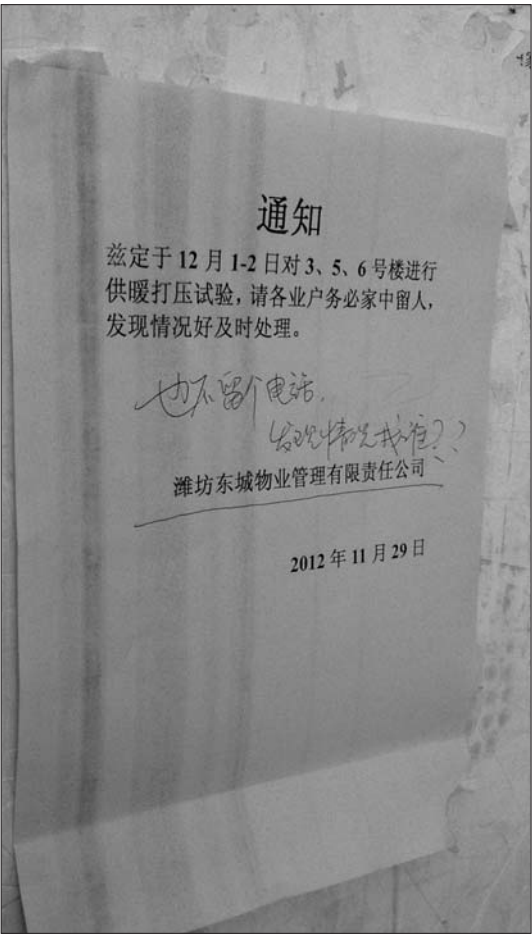 通知
兹定于 12 月 1-2 日对 3、5、6 号楼进行
供暖打压试验，请各业户务必家中留人，
发现情况好及时处理。
也不留个电话.
发现情况找谁??
潍坊东城物业管理有限责任公司
2012 年 11 月 29 日